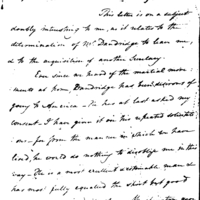 This letter is on a subject
doubly interesting to me, as it relates to the
determination of Mr Dandridge to leave me,
& to the acquisition of another Secretary.
Ever since we heard of the martial move-
ments at home, Dandridge has had desires of
going to America - He has at last asked my
consent. I have given it on his repeated solicita-
tions - for from the manner in which we have
lived, he would do nothing to disoblige me in this
way - He is a most excellent & estimable man &
has most fully equalled the